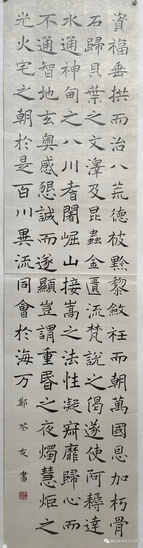 資福垂拱而治八荒德被黔黎斂衽而朝萬國恩加朽骨
石歸貝葉之文澤及昆蟲金匱流梵說之偈遂使阿耨達
水通神甸之八川耆闍崛山接嵩之法性凝寂靡歸心而
不通智地玄奧感懇誠而遂顯豈謂重昏之夜燭慧炬之
光火宅之朝於是百川異流同會於海万
鄭友書